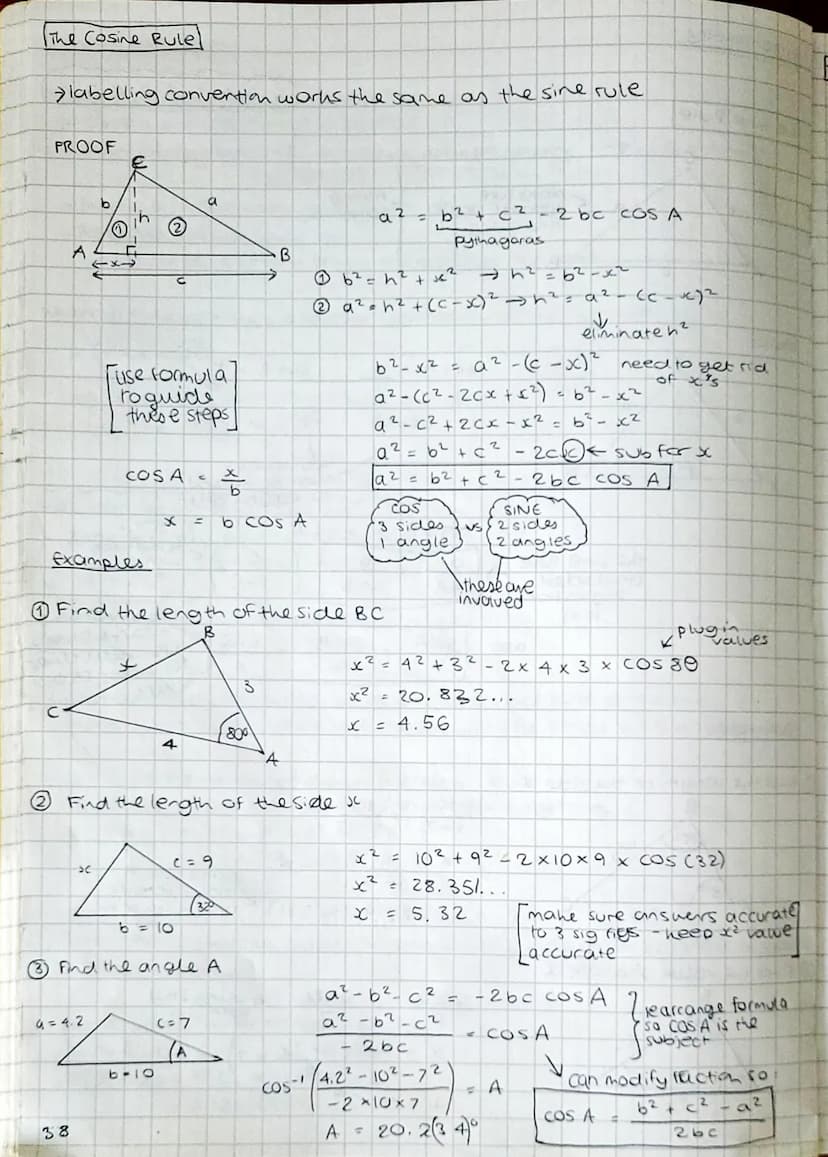 The Cosine Rule
→ labelling convention works the same as the sine rule
PROOF
C
b
a
h
①
②
A
B
x
c
a² = b² + c² - 2bc cos A
Pythagoras
① b² = h² + x² → h² = b² - x²
② a² = h² + (c - x)² → h² = a² - (c - x)²
eliminate h²
b² - x² = a² - (c - x)² need to get rid
of x's
a² - (c² - 2cx + x²) = b² - x²
a² - c² + 2cx - x² = b² - x²
a² = b² + c² - 2cx ← sub for x
a² = b² + c² - 2bc cos A
[use formula
to guide
these steps]
cos A = x/b
x = b cos A
COS
3 sides
1 angle
vs
SINE
2 sides
2 angles
these are
involved
Examples
① Find the length of the side BC
B
x
3
C
4
80°
A
plug in
values
x² = 4² + 3² - 2 x 4 x 3 x cos 80
x² = 20.832...
x = 4.56
② Find the length of the side x
x
c = 9
32°
b = 10
x² = 10² + 9² - 2 x 10 x 9 x cos (32)
x² = 28.351...
x = 5.32
[make sure answers accurate
to 3 sig figs - need x² value
accurate]
③ Find the angle A
a = 4.2
c = 7
A
b = 10
a² - b² - c² = -2bc cos A
a² - b² - c² / -2bc = cos A
rearrange formula
so cos A is the
subject
cos⁻¹ (4.2² - 10² - 7² / -2 x 10 x 7) = A
A = 20.2(34)°
can modify fraction so:
cos A = b² + c² - a² / 2bc
38